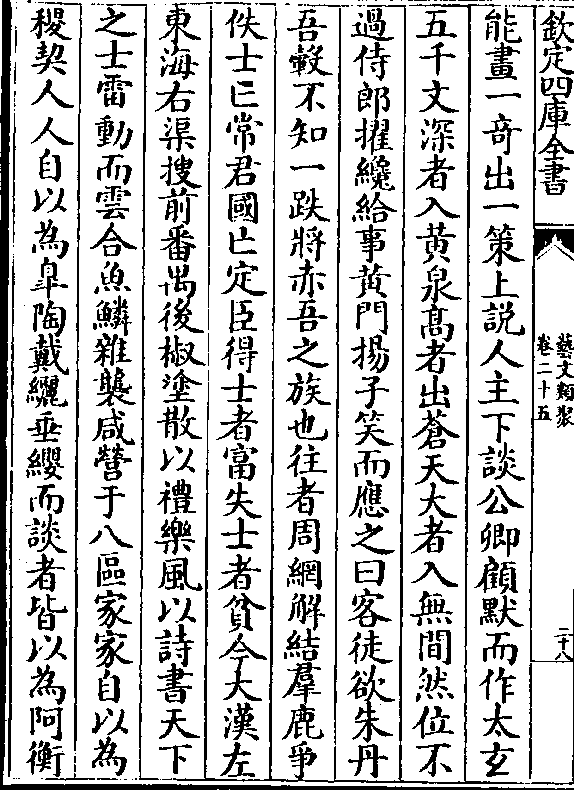 欽定四庫全書
藝文類聚
卷二十五
二十八
能畫一竒出一策上説人主下談公卿顧黙而作太玄
五千文深者入黄泉髙者出蒼天大者入無間然位不
過侍郎擢纔給事黄門揚子笑而應之曰客徒欲朱丹
吾轂不知一跌將赤吾之族也往者周網解結羣鹿爭
佚士亡常君國亡定臣得士者富失士者貧今大漢左
東海右渠搜前番禺後椒塗散以禮樂風以詩書天下
之士雷動而雲合魚鱗雜襲咸營于八區家家自以為
稷契人人自以為臯陶戴纚垂纓而談者皆以為阿衡